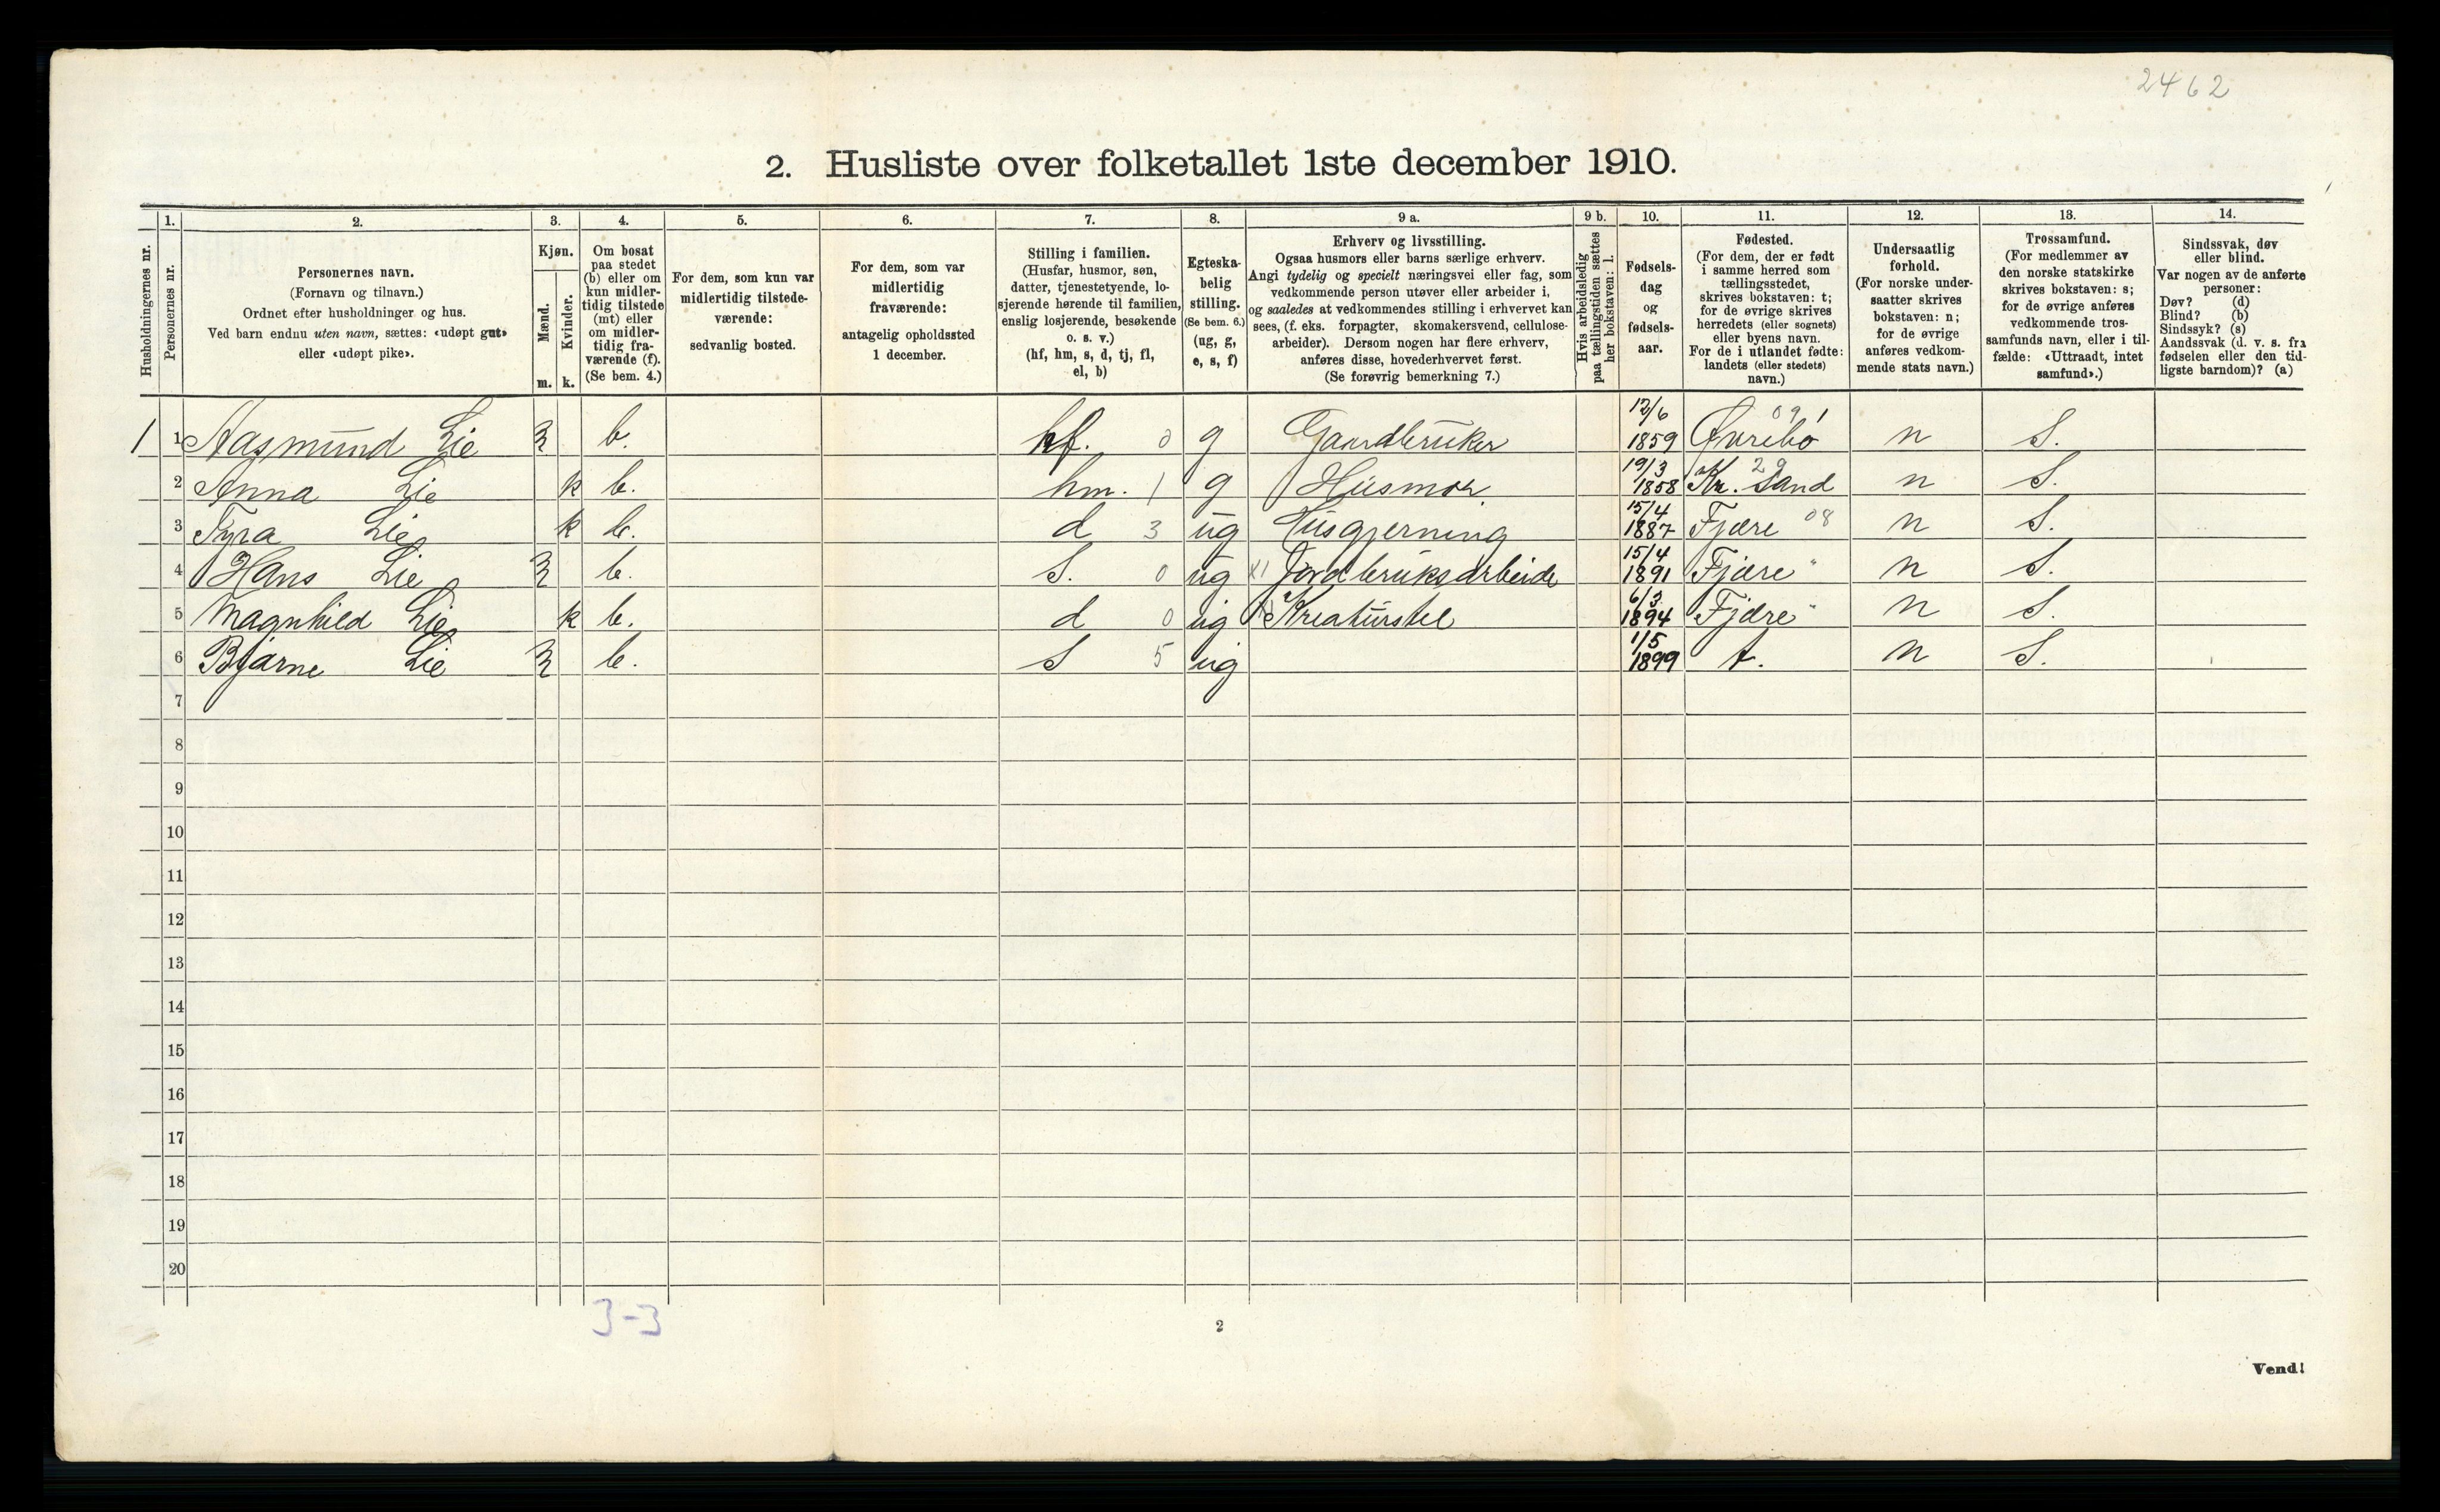 2462
2. Husliste over folketallet 1ste december 1910.
Husholdningernes nr.
1.
Personernes nr.
2.
Personernes navn.
(Fornavn og tilnavn.)
Ordnet efter husholdninger og hus.
Ved barn endnu uten navn, sættes: «udøpt gut»
eller «udøpt pike».
3.
Kjøn.
Mænd.
Kvinder.
m. k.
4.
Om bosat
paa stedet
(b) eller om
kun midler-
tidig tilstede
(mt) eller
om midler-
tidig fra-
værende (f).
(Se bem. 4.)
5.
For dem, som kun var
midlertidig tilstede-
værende:
sedvanlig bosted.
6.
For dem, som var
midlertidig
fraværende:
antagelig opholdssted
1 december.
7.
Stilling i familien.
(Husfar, husmor, søn,
datter, tjenestetyende, lo-
sjerende hørende til familien,
enslig losjerende, besøkende
o. s. v.)
(hf, hm, s, d, tj, fl,
el, b)
8.
Egteska-
belig
stilling.
(Se bem. 6.)
(ug, g,
e, s, f)
9 a.
Erhverv og livsstilling.
Ogsaa husmors eller barns særlige erhverv.
Angi tydelig og specielt næringsvei eller fag, som
vedkommende person utøver eller arbeider i,
og saaledes at vedkommendes stilling i erhvervet kan
sees, (f. eks. forpagter, skomakersvend, cellulose-
arbeider). Dersom nogen har flere erhverv,
anføres disse, hovederhvervet først.
(Se forøvrig bemerkning 7.)
9 b.
Hvis arbeidsledig
paa tællingstiden sættes
her bokstaven: l.
10.
Fødsels-
dag
og
fødsels-
aar.
11.
Fødested.
(For dem, der er født
i samme herred som
tællingsstedet,
skrives bokstaven: t;
for de øvrige skrives
herredets (eller sognets)
eller byens navn.
For de i utlandet fødte:
landets (eller stedets)
navn.)
12.
Undersaatlig
forhold.
(For norske under-
saatter skrives
bokstaven: n;
for de øvrige
anføres vedkom-
mende stats navn.)
13.
Trossamfund.
(For medlemmer av
den norske statskirke
skrives bokstaven: s;
for de øvrige anføres
vedkommende tros-
samfunds navn, eller i til-
fælde: «Uttraadt, intet
samfund».)
14.
Sindssvak, døv
eller blind.
Var nogen av de anførte
personer:
Døv? (d)
Blind? (b)
Sindssyk? (s)
Aandssvak (d. v. s. fra
fødselen eller den tid-
ligste barndom)? (a)
1 1 Aasmund Lie m b. hf. 0 g Gaardbruker 12/6 1859 Øvrebø 09 1 n S.
2 Anna Lie k b. hm. 1 g Husmor 19/3 1858 Kr. Sand 29 n S.
3 Tyra Lie k b. d 3 ug Husgjerning 15/4 1887 Fjære 08 n S.
4 Hans Lie m b. S. 0 ug Jordbruksarbeide 15/4 1891 Fjære " n S.
5 Magnhild Lie k b. d 0 ug Kreaturstel 6/3 1894 Fjære " n S.
6 Bjarne Lie m b. S 5 ug 1/5 1899 t. n S.
7
8
9
10
11
12
13
14
15
16
17
18
19
20
3-3
2
Vend!